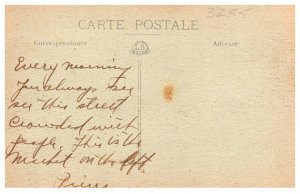 CARTE POSTALE
3255
Correspondance
LB
Adresse
Every morning
you always see
see this street
crowded with
people. This is the
market on the left